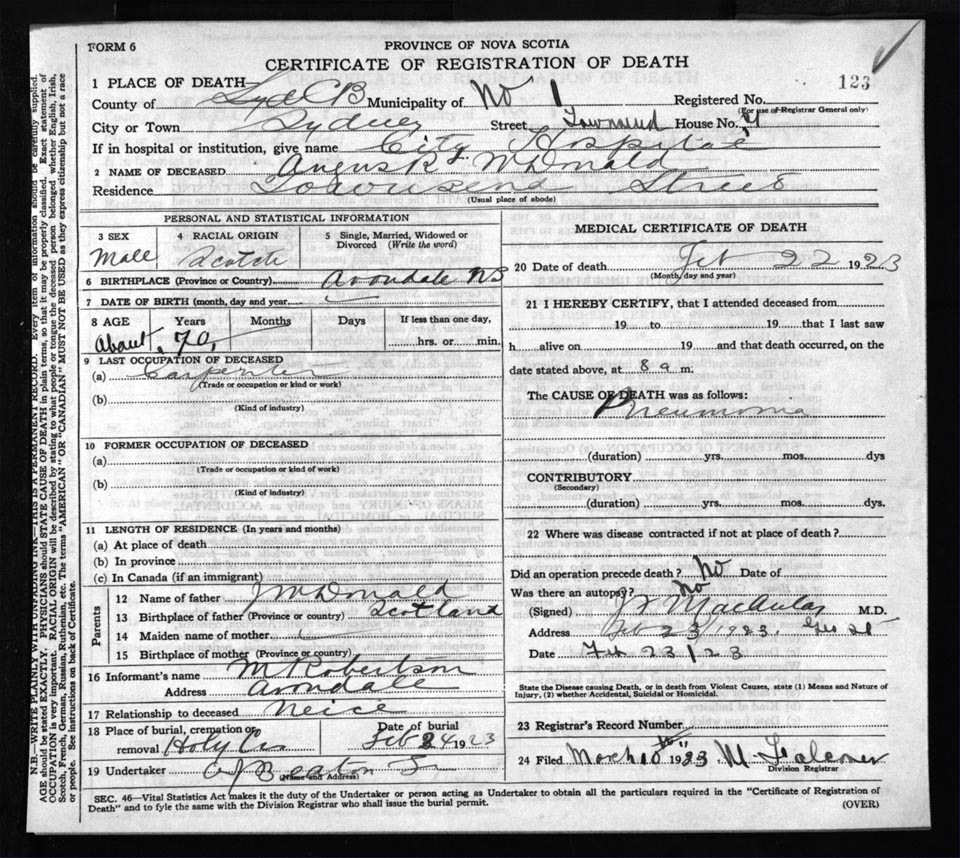 FORM 6
PROVINCE OF NOVA SCOTIA
CERTIFICATE OF REGISTRATION OF DEATH
123
1 PLACE OF DEATH—
County of Syd CB Municipality of No 1 Registered No.
(For use of Registrar General only)
City or Town Sydney Street Townsend House No.
If in hospital or institution, give name City Hospital
2 NAME OF DECEASED Angus K McDonald
Residence Townsend Street
(Usual place of abode)
PERSONAL AND STATISTICAL INFORMATION
3 SEX
Male
4 RACIAL ORIGIN
Scotch
5 Single, Married, Widowed or Divorced (Write the word)
6 BIRTHPLACE (Province or Country) Avondale NS
7 DATE OF BIRTH (month, day and year)
8 AGE Years Months Days If less than one day,
About 70 hrs. or min.
9 LAST OCCUPATION OF DECEASED
(a) Carpenter
(Trade or occupation or kind or work)
(b)
(Kind of industry)
10 FORMER OCCUPATION OF DECEASED
(a)
(Trade or occupation or kind of work)
(b)
(Kind of industry)
11 LENGTH OF RESIDENCE (In years and months)
(a) At place of death
(b) In province
(c) In Canada (if an immigrant)
Parents
12 Name of father J McDonald
13 Birthplace of father (Province or country) Scotland
14 Maiden name of mother
15 Birthplace of mother (Province or country)
16 Informant's name M Robertson
Address Avondale
17 Relationship to deceased Neice
18 Place of burial, cremation or removal Holy
Date of burial
Feb 24 1923
19 Undertaker Beaton
(Name and Address)
MEDICAL CERTIFICATE OF DEATH
20 Date of death Feb 22 1923
(Month, day and year)
21 I HEREBY CERTIFY, that I attended deceased from
19 to 19 that I last saw
h alive on 19 and that death occurred, on the
date stated above, at 8 a m.
The CAUSE OF DEATH was as follows:
Pneumonia
(duration) yrs. mos. dys
CONTRIBUTORY
(Secondary)
(duration) yrs. mos. dys.
22 Where was disease contracted if not at place of death?
Did an operation precede death? No Date of
Was there an autopsy? No
(Signed) MacAulay M.D.
Address Feb 23/1923.
Date Feb 23/23
State the Disease causing Death, or in death from Violent Causes, state (1) Means and Nature of Injury, (2) whether Accidental, Suicidal or Homicidal.
23 Registrar's Record Number
24 Filed March 10 1923 Falconer
Division Registrar
SEC. 46—Vital Statistics Act makes it the duty of the Undertaker or person acting as Undertaker to obtain all the particulars required in the "Certificate of Registration of
Death" and to fyle the same with the Division Registrar who shall issue the burial permit. (OVER)
N.B.—WRITE PLAINLY WITH UNFADING INK—THIS IS A PERMANENT RECORD. Every item of information should be carefully supplied.
AGE should be stated EXACTLY. PHYSICIANS should STATE CAUSE OF DEATH in plain terms, so that it may be properly classified. Exact statement of
OCCUPATION is very important. RACIAL ORIGIN will be described by stating to what people or tongue the deceased person belonged whether English, Irish,
Scotch, French, German, Russian, Ruthenian, etc. The terms "AMERICAN" OR "CANADIAN" MUST NOT BE USED as they express citizenship but not a race
or people. See instructions on back of Certificate.